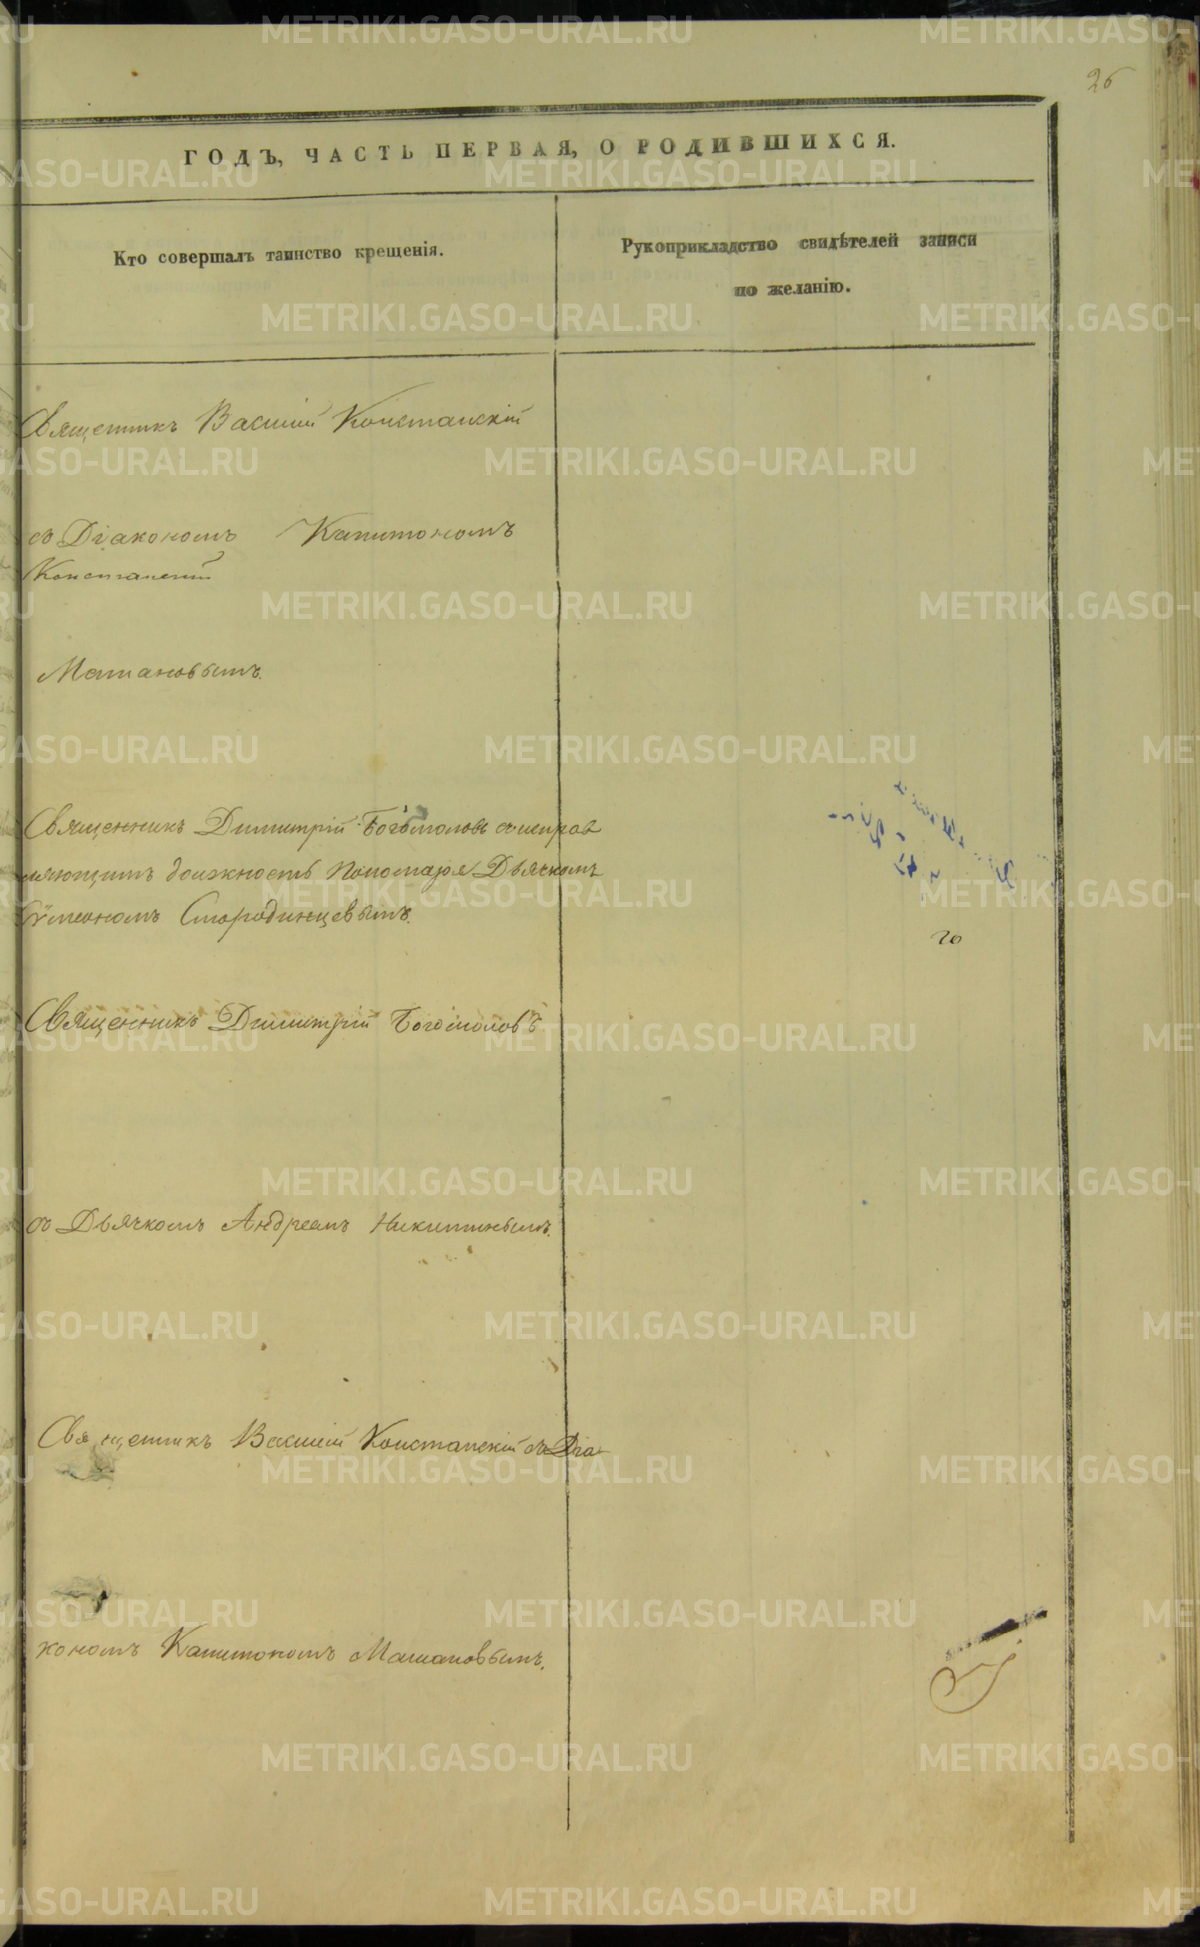 26
ГОДЪ, ЧАСТЬ ПЕРВАЯ, О РОДИВШИХСЯ.
Кто совершалъ таинство крещенія.
Рукоприкладство свидѣтелей записи
по желанію.
Священникъ Василій Констанскій
съ Діакономъ Капитономъ
Констанскій
Машановымъ.
Священникъ Димитрій Богомоловъ съ исправ
ляющимъ должность Пономаря Дьячкомъ
Сѵмеономъ Стародинцевымъ.
20
Священникъ Димитрій Богомоловъ
съ Дьячкомъ Андреемъ Никитинымъ.
Священникъ Василій Констанскій съ Діа-
кономъ Капитономъ Машановымъ.
METRIKI.GASO-URAL.RU